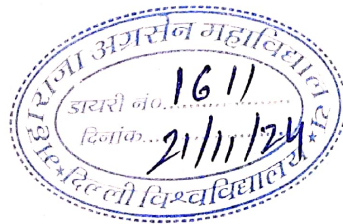 महाराजा अग्रसेन महाविद्यालय
डायरी नं०.1611
दिनांक...21/11/24
दिल्ली विश्वविद्यालय